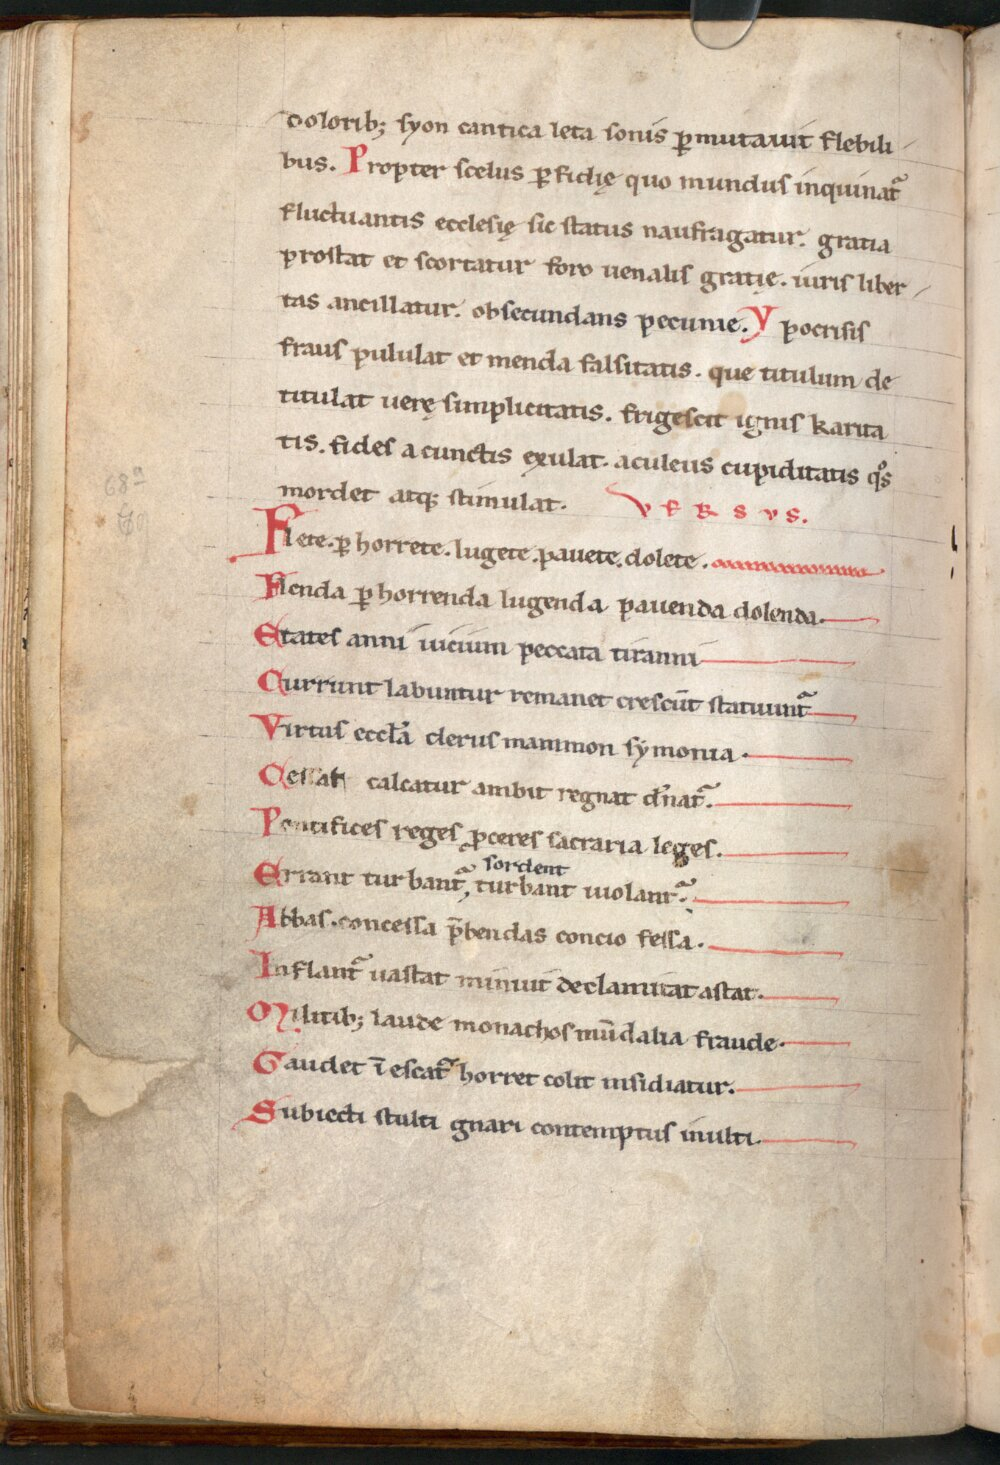 dolorib; syon cantica leta sonis ꝑmutauit flebili
bus. Propter scelus ꝑfidię quo mundus inquinat᷑
fluctuantis ecclesię sic status naufragatur. gratia
prostat et scortatur foro uenalis gratię. iuris liber
tas ancillatur. obsecundans pecunie. Ypocrisis
fraus pululat et menda falsitatis. que titulum de
titulat uerę simplicitatis. frigescit ignis karita
tis. fides a cunctis exulat. aculeus cupiditatis qͦs
mordet atq; stimulat. VERSVS.
Flete. ꝑhorrete. lugete. pauete. dolete.
Flenda ꝑhorrenda lugenda pauenda dolenda.
Etates anni uicium peccata tiranni
Currunt labuntur remanet crescūt statuunt᷑
Virtus eccl̄a clerus mammon symonia.
Cessat calcatur ambit regnat dn̄at᷑.
Pontifices reges ꝓceres sacraria leges.
sordent
Errant turbant᷑, turbant uiolant᷑.
Abbas. concessa p̄bendas concio fessa.
Inflant᷑ uastat minuit declamitat astat.
Militib; laude monachos mūdalia fraude.
Gaudet īescat᷑ horret colit insidiatur.
Subiecti stulti gnari contemptus inulti.
68a